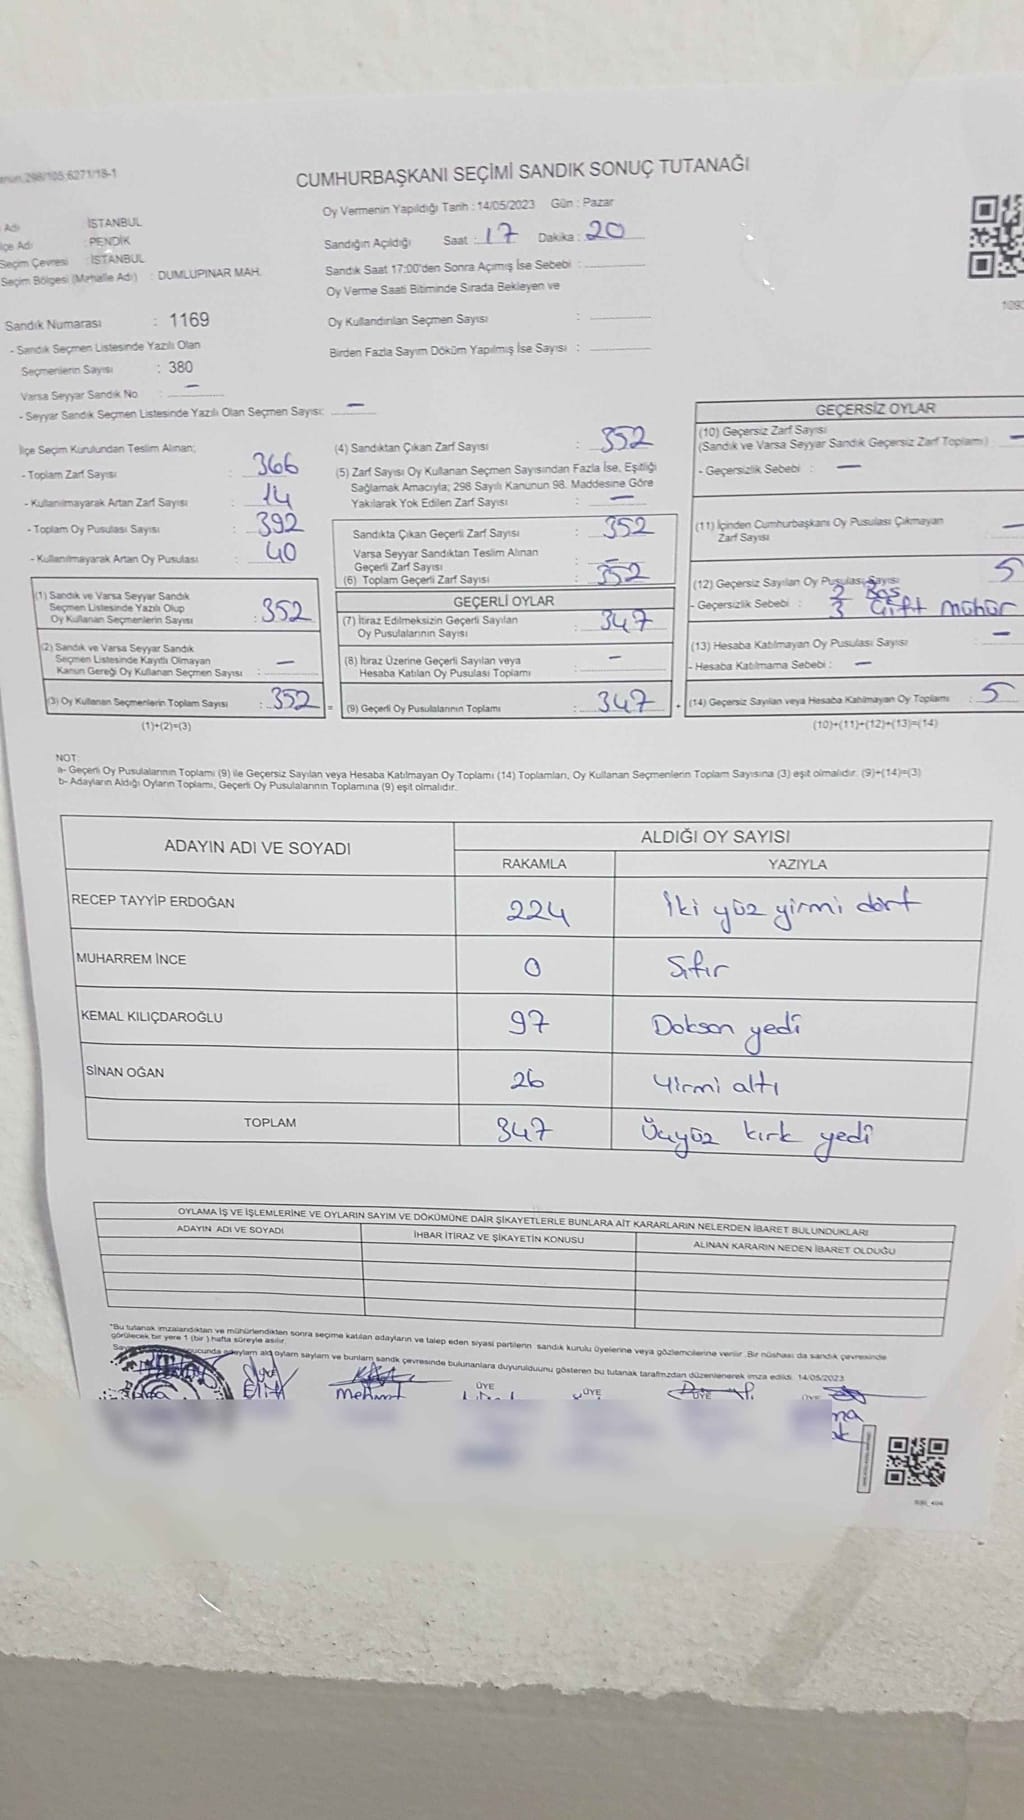 298/105,6271/18-1
CUMHURBAŞKANI SEÇİMİ SANDIK SONUÇ TUTANAĞI
Adı : İSTANBUL
İlçe Adı : PENDİK
Seçim Çevresi : İSTANBUL
Seçim Bölgesi (Mahalle Adı) : DUMLUPINAR MAH.
Oy Vermenin Yapıldığı Tarih : 14/05/2023 Gün : Pazar
Sandığın Açıldığı Saat : 17 Dakika : 20
Sandık Saat 17:00'den Sonra Açımış İse Sebebi :
Oy Verme Saati Bitiminde Sırada Bekleyen ve
Oy Kullandırılan Seçmen Sayısı :
Birden Fazla Sayım Döküm Yapılmış İse Sayısı :
Sandık Numarası : 1169
- Sandık Seçmen Listesinde Yazılı Olan
Seçmenlerin Sayısı : 380
Varsa Seyyar Sandık No : —
- Seyyar Sandık Seçmen Listesinde Yazılı Olan Seçmen Sayısı: —
İlçe Seçim Kurulundan Teslim Alınan;
- Toplam Zarf Sayısı : 366
- Kullanılmayarak Artan Zarf Sayısı : 14
- Toplam Oy Pusulası Sayısı : 392
- Kullanılmayarak Artan Oy Pusulası : 40
(1) Sandık ve Varsa Seyyar Sandık
Seçmen Listesinde Yazılı Olup
Oy Kullanan Seçmenlerin Sayısı : 352
(2) Sandık ve Varsa Seyyar Sandık
Seçmen Listesinde Kayıtlı Olmayan
Kanun Gereği Oy Kullanan Seçmen Sayısı : —
(3) Oy Kullanan Seçmenlerin Toplam Sayısı : 352 =
(1)+(2)=(3)
(4) Sandıktan Çıkan Zarf Sayısı : 352
(5) Zarf Sayısı Oy Kullanan Seçmen Sayısından Fazla İse, Eşitliği
Sağlamak Amacıyla; 298 Sayılı Kanunun 98. Maddesine Göre
Yakılarak Yok Edilen Zarf Sayısı : —
Sandıkta Çıkan Geçerli Zarf Sayısı : 352
Varsa Seyyar Sandıktan Teslim Alınan
Geçerli Zarf Sayısı : —
(6) Toplam Geçerli Zarf Sayısı : 352
GEÇERLİ OYLAR
(7) İtiraz Edilmeksizin Geçerli Sayılan
Oy Pusulalarının Sayısı : 347
(8) İtiraz Üzerine Geçerli Sayılan veya
Hesaba Katılan Oy Pusulası Toplamı : —
(9) Geçerli Oy Pusulalarının Toplamı : 347 +
GEÇERSİZ OYLAR
(10) Geçersiz Zarf Sayısı
(Sandık ve Varsa Seyyar Sandık Geçersiz Zarf Toplamı) : —
- Geçersizlik Sebebi : —
(11) İçinden Cumhurbaşkanı Oy Pusulası Çıkmayan
Zarf Sayısı —
(12) Geçersiz Sayılan Oy Pusulası Sayısı 5
2 Boş
- Geçersizlik Sebebi : 3 Çift mühür
(13) Hesaba Katılmayan Oy Pusulası Sayısı : —
- Hesaba Katılmama Sebebi : —
(14) Geçersiz Sayılan veya Hesaba Katılmayan Oy Toplamı : 5
(10)+(11)+(12)+(13)=(14)
NOT:
a- Geçerli Oy Pusulalarının Toplamı (9) ile Geçersiz Sayılan veya Hesaba Katılmayan Oy Toplamı (14) Toplamları, Oy Kullanan Seçmenlerin Toplam Sayısına (3) eşit olmalıdır. (9)+(14)=(3)
b- Adayların Aldığı Oyların Toplamı, Geçerli Oy Pusulalarının Toplamına (9) eşit olmalıdır.
ADAYIN ADI VE SOYADI ALDIĞI OY SAYISI
RAKAMLA YAZIYLA
RECEP TAYYİP ERDOĞAN 224 İki yüz yirmi dört
MUHARREM İNCE 0 Sıfır
KEMAL KILIÇDAROĞLU 97 Doksan yedi
SİNAN OĞAN 26 Yirmi altı
TOPLAM 347 Üçyüz kırk yedi
OYLAMA İŞ VE İŞLEMLERİNE VE OYLARIN SAYIM VE DÖKÜMÜNE DAİR ŞİKAYETLERLE BUNLARA AİT KARARLARIN NELERDEN İBARET BULUNDUKLARI
ADAYIN ADI VE SOYADI İHBAR İTİRAZ VE ŞİKAYETİN KONUSU ALINAN KARARIN NEDEN İBARET OLDUĞU
*Bu tutanak imzalandıktan ve mühürlendikten sonra seçime katılan adayların ve talep eden siyasi partilerin sandık kurulu üyelerine veya gözlemcilerine verilir. Bir nüshası da sandık çevresinde
görülecek bir yere 1 (bir) hafta süreyle asılır.
sandık çevresinde bulunanlara duyurulduunu gösteren bu tutanak tarafımzdan düzenlenerek imza edildi. 14/05/2023
Elif Mehmet ÜYE ÜYE ÜYE